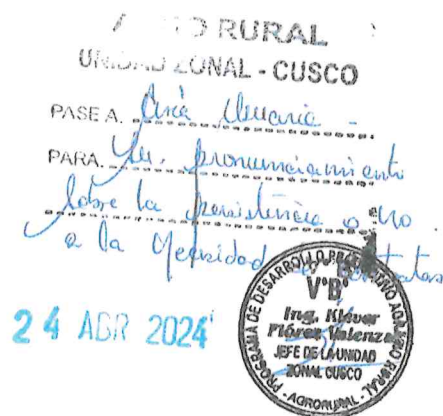 RURAL
UNIDAD ZONAL - CUSCO
PASE A. Area Usuaria -
PARA. Su. pronunciamiento
sobre la persistencia o no
a la Necesidad de contratar
PROGRAMA DE DESARROLLO PRODUCTIVO AGRARIO RURAL
V°B°
Ing. Kléver
Flórez Valenzu
JEFE DE LA UNIDAD
ZONAL CUSCO
- AGRORURAL -
24 ABR 2024